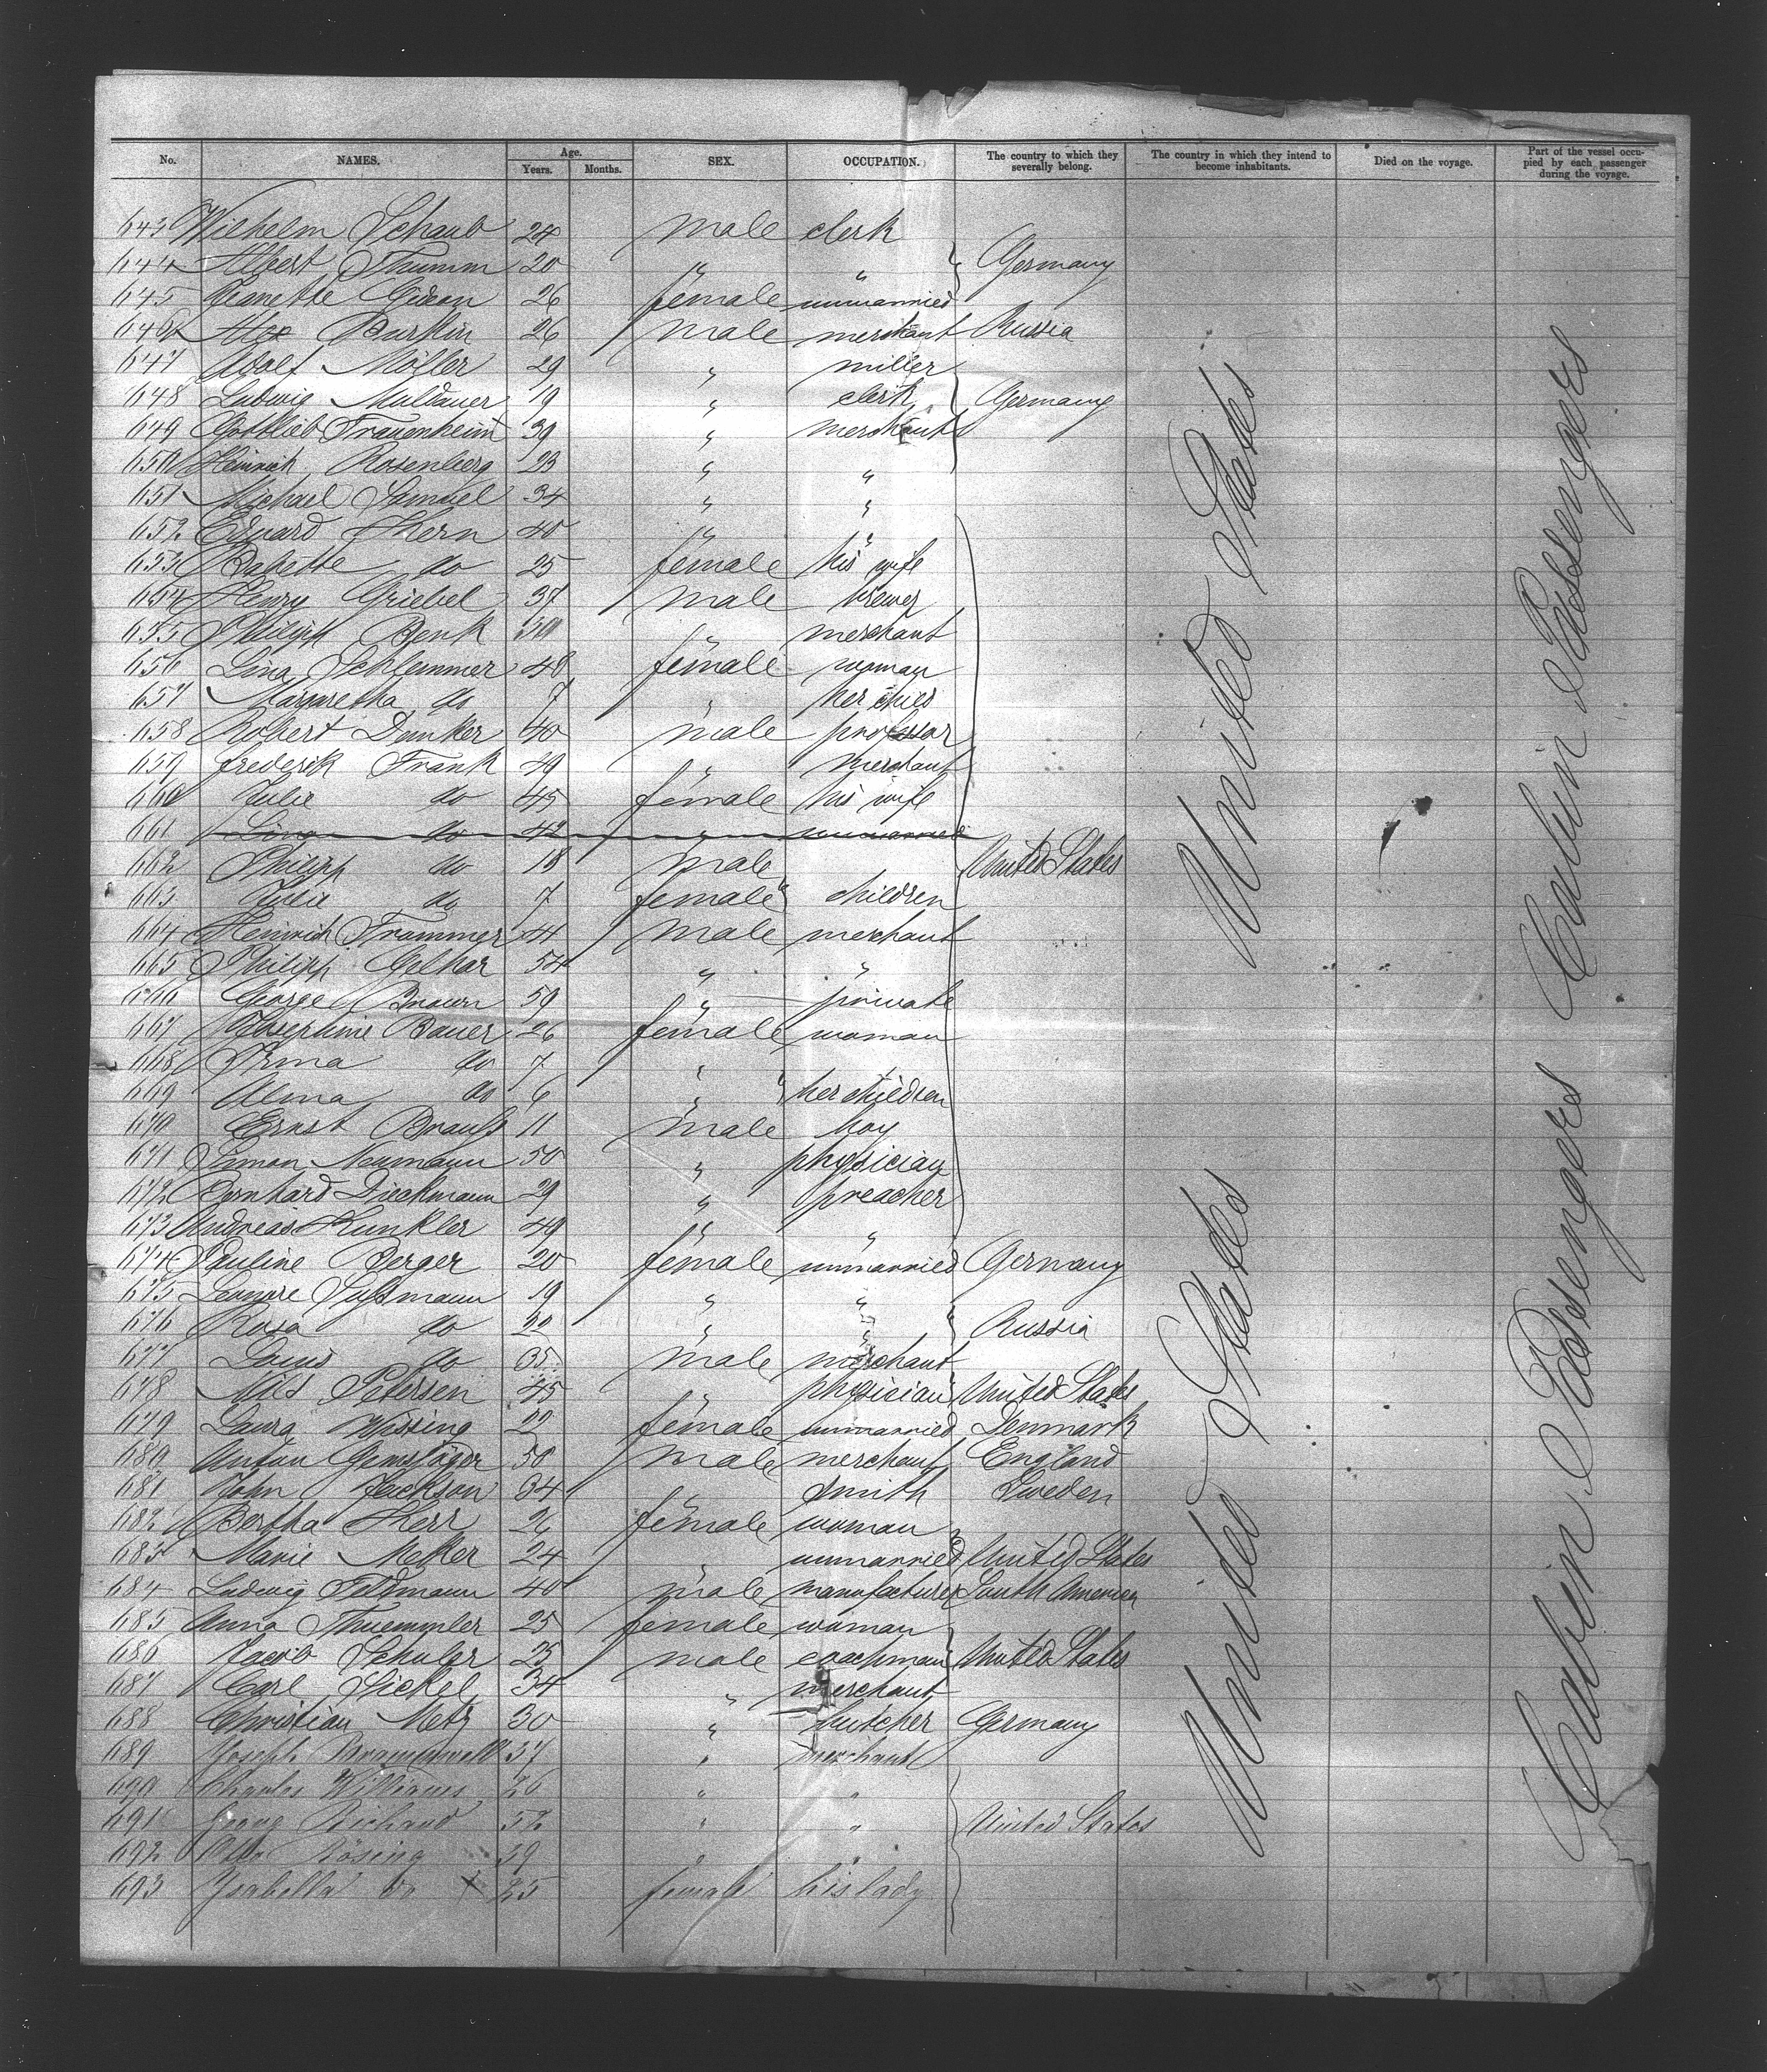 No. NAMES. Age. Years. Months. SEX. OCCUPATION. The country to which they severally belong. The country in which they intend to become inhabitants. Died on the voyage. Part of the vessel occupied by each passenger during the voyage.
643 Wilhelm Schaub 24 male clerk
644 Albert Thumm 20 " " Germany
645 Jeanette Gideon 26 female unmarried
646 Alex Burkin 26 male merchant Russia
647 Adolf Möller 29 " miller
648 Ludwig Muldauer 19 " clerk Germany
649 Gottlieb Frauenheim 39 " merchant
650 Heinrich Rosenberg 23 " "
651 Michael Samuel 34 " "
652 Eduard Kern 40 " "
653 Babette do 25 female his wife
654 Henry Griebel 37 male brewer
655 Philipp Benk 30 " merchant
656 Lina Schlemmer 48 female woman
657 Margaretha do 7 " her child
658 Robert Dunker 40 male professor
659 Frederik Frank 49 " merchant
660 Julie do 45 female his wife
661 Lina do 42 " unmarried
662 Philipp do 18 male United States
663 Julie do 7 female children
664 Heinrich Trammer 44 male merchant
665 Philipp Gelhar 54 " "
666 George Brown 59 " private
667 Josephine Bauer 26 female woman
668 Irma do 7 "
669 Alma do 6 " her children
670 Ernst Brauss 11 male boy
671 Simon Neumann 50 " physician
672 Bernhard Dieckmann 29 " preacher
673 Andreas Kunkler 49 " "
674 Pauline Berger 20 female unmarried Germany
675 Leonore Sussmann 19 " "
676 Rosa do 22 " " Russia
677 Louis do 35 male merchant
678 Nils Petersen 45 " physician United States
679 Laura Wissing 22 female unmarried Denmark
680 Anton Gemsjäger 50 male merchant England
681 John Jackson 34 " smith Sweden
682 Bertha Herr 26 female woman
683 Marie Metler 24 " unmarried United States
684 Ludwig Feldmann 40 male manufacturer South America
685 Anna Thuemmler 25 female woman
686 Jacob Schuler 25 male coachman United States
687 Carl Sickel 34 " merchant
688 Christian Metz 30 " butcher Germany
689 Joseph Brammwell 37 " merchant
690 Charles Williams 26 " "
691 Georg Richard 52 " " United States
692 Otto Rösing 39 " "
693 Isabella do x 25 female his lady
United States
United States
Cabin Passengers
Cabin Passengers